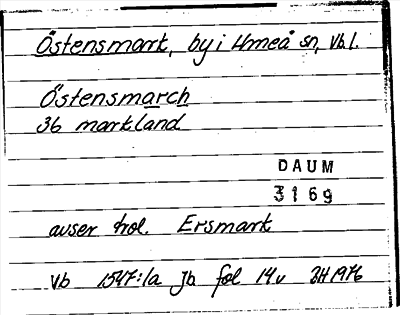 Östensmark, by i Umeå sn, Vb.l.
Östensmarch
36 markland
DAUM
3169
avser hol. Ersmark
Vb 1547:1a Jb fol 14v BH 1976